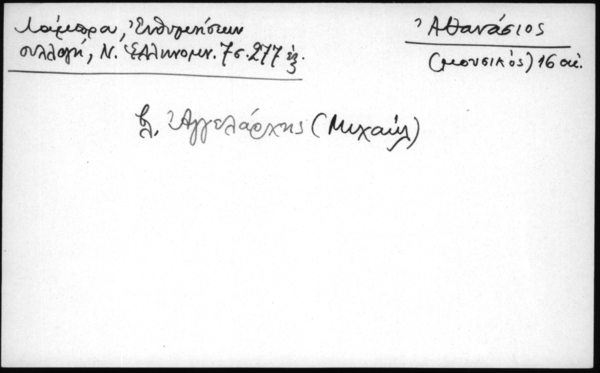 Λάμπρα, Ἐνθυμήσεων
συλλογή, Ν. Ἑλληνομν. 7 σ. 277 ἑξ.
Ἀθανάσιος
(μουσικός) 16 αἰ.
βλ. Ἀγγελάρχης (Μιχαήλ)